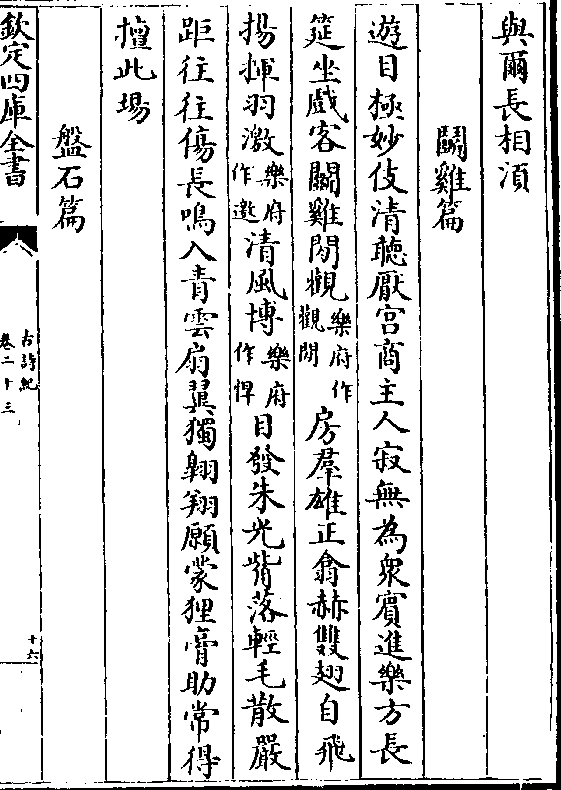 與爾長相湏
鬭雞篇
遊目極妙伎清聽厭宫商主人寂無為衆賓進樂方長
筵坐戲客鬭雞閒觀樂府作觀閒房羣雄正翕赫雙翅自飛
揚揮羽激樂府作邀清風博樂府作悍目發朱光觜落輕毛散嚴
距往往傷長鳴入青雲扇翼獨翱翔願蒙狸膏助常得
擅此場
盤石篇
欽定四庫全書
古詩紀
卷二十三
十六